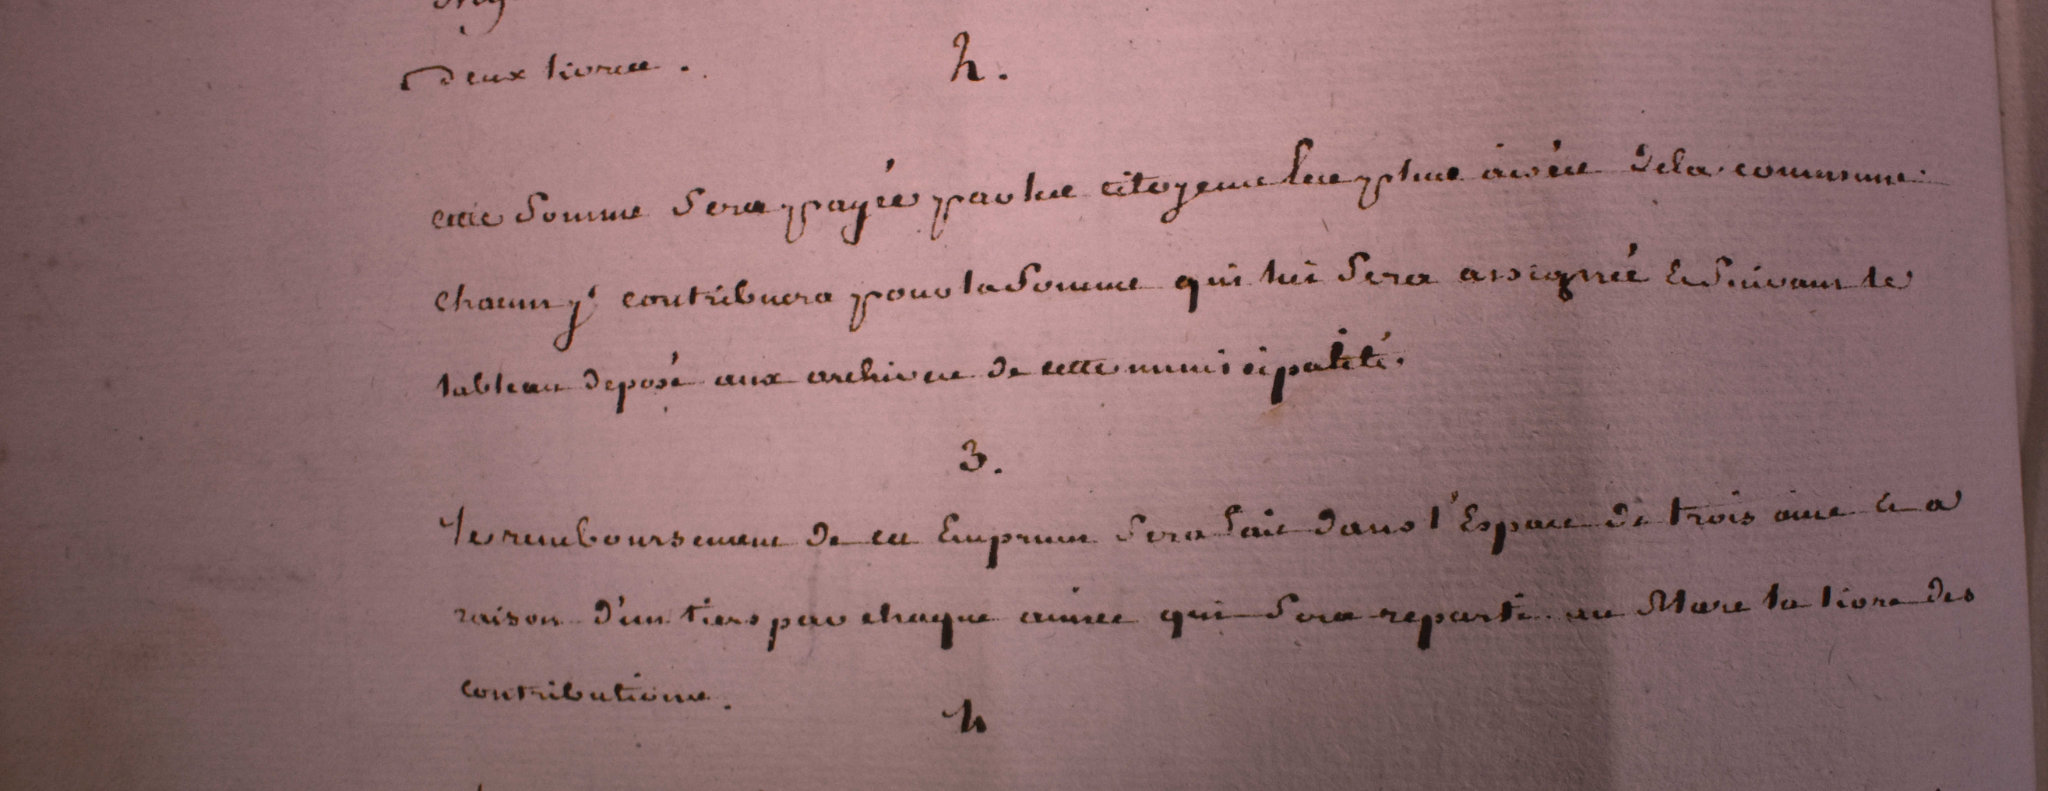 deux livres.
2.
cette somme sera payée par les citoyens les plus aisés de la commune.
chacun y contribuera pour la somme qui lui sera assignée et suivant le
tableau deposé aux archives de cette municipalité.
3.
le remboursement de cet Emprunt sera fait dans l'Espace de trois ans et a
raison d'un tiers par chaque année qui sera reparti au Marc la livre des
contributions.
4